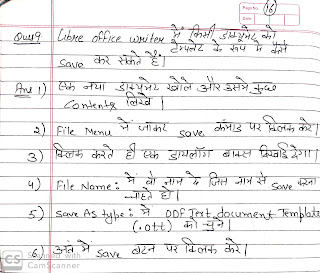 Page No. 16
Date
Que9 Libre office writer में किसी डाक्यूमेंट को
टेम्पलेट के रूप में कैसे
save कर सकते है।
Ans 1) एक नया डाक्यूमेंट खोले और उसमे कुछ
contents लिखे।
2) File Menu में जाकर save कमांड पर क्लिक करे।
3) क्लिक करते ही एक डायलॉग बाक्स दिखाई देगा।
4) File Name: में वो नाम दे जिस नाम से save करना
चाहते हो।
5) Save As type: में ODF Text document Template
(.ott) को चुने।
6) अंत में save बटन पर क्लिक करे।
CS Scanned with
CamScanner